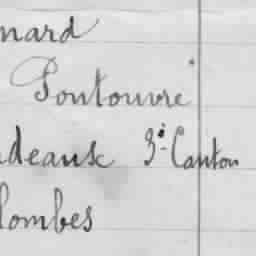 nard
Pontouvre
deaux 3e Canton
lombes